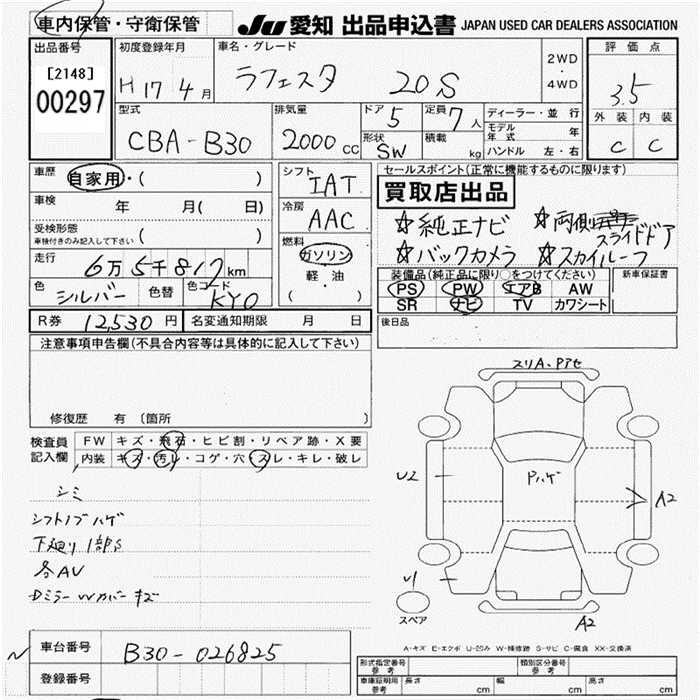 車内保管・守衛保管
JU 愛知 出品申込書 JAPAN USED CAR DEALERS ASSOCIATION
出品番号 [2148] 00297
初度登録年月 H17年4月
車名・グレード ラフェスタ 20S
2WD・4WD
評価点 3.5
外装 C 内装 C
型式 CBA-B30
排気量 2000cc
ドア 5 定員 7人
形状 SW 積載 kg
ディーラー・並行
モデル年式 年
ハンドル 左・右
車歴 自家用・( )
車検 年 月( 日)
受検形態
車検付きのみ記入して下さい ( )
走行 6万5千817km
色 シルバー 色替 色コード KY0
シフト IAT
冷房 AAC
燃料 ガソリン
軽・油
( )
セールスポイント(正常に機能するものに限ります)
買取店出品
☆純正ナビ ☆両側スライドドア
☆バックカメラ ☆スカイルーフ
装備品(純正品に限り○をつけてください) 新車保証書
PS PW エアB AW
SR ナビ TV カワシート
R券 12,530円 名変通知期限 月 日
後日品
注意事項申告欄(不具合内容等は具体的に記入して下さい)
修復歴 有 〔箇所
検査員記入欄
FW キズ・飛石・ヒビ割・リペア跡・X要
内装 キズ・汚レ・コゲ・穴・スレ・キレ・破レ
シミ
シフトノブハゲ
下廻り1部S
各AU
Dミラーウカバーキズ
スリA、Pアセ
U2
Pハゲ
A2
U1
スペア
A2
A-キズ E-エクボ U-凹み W-補修跡 S-サビ C-腐食 XX-交換済
車台番号 B30-026825
登録番号
形式指定番号 参考 類別区分番号 参考
車庫証明用 参考 長さ cm 幅 cm 高さ cm